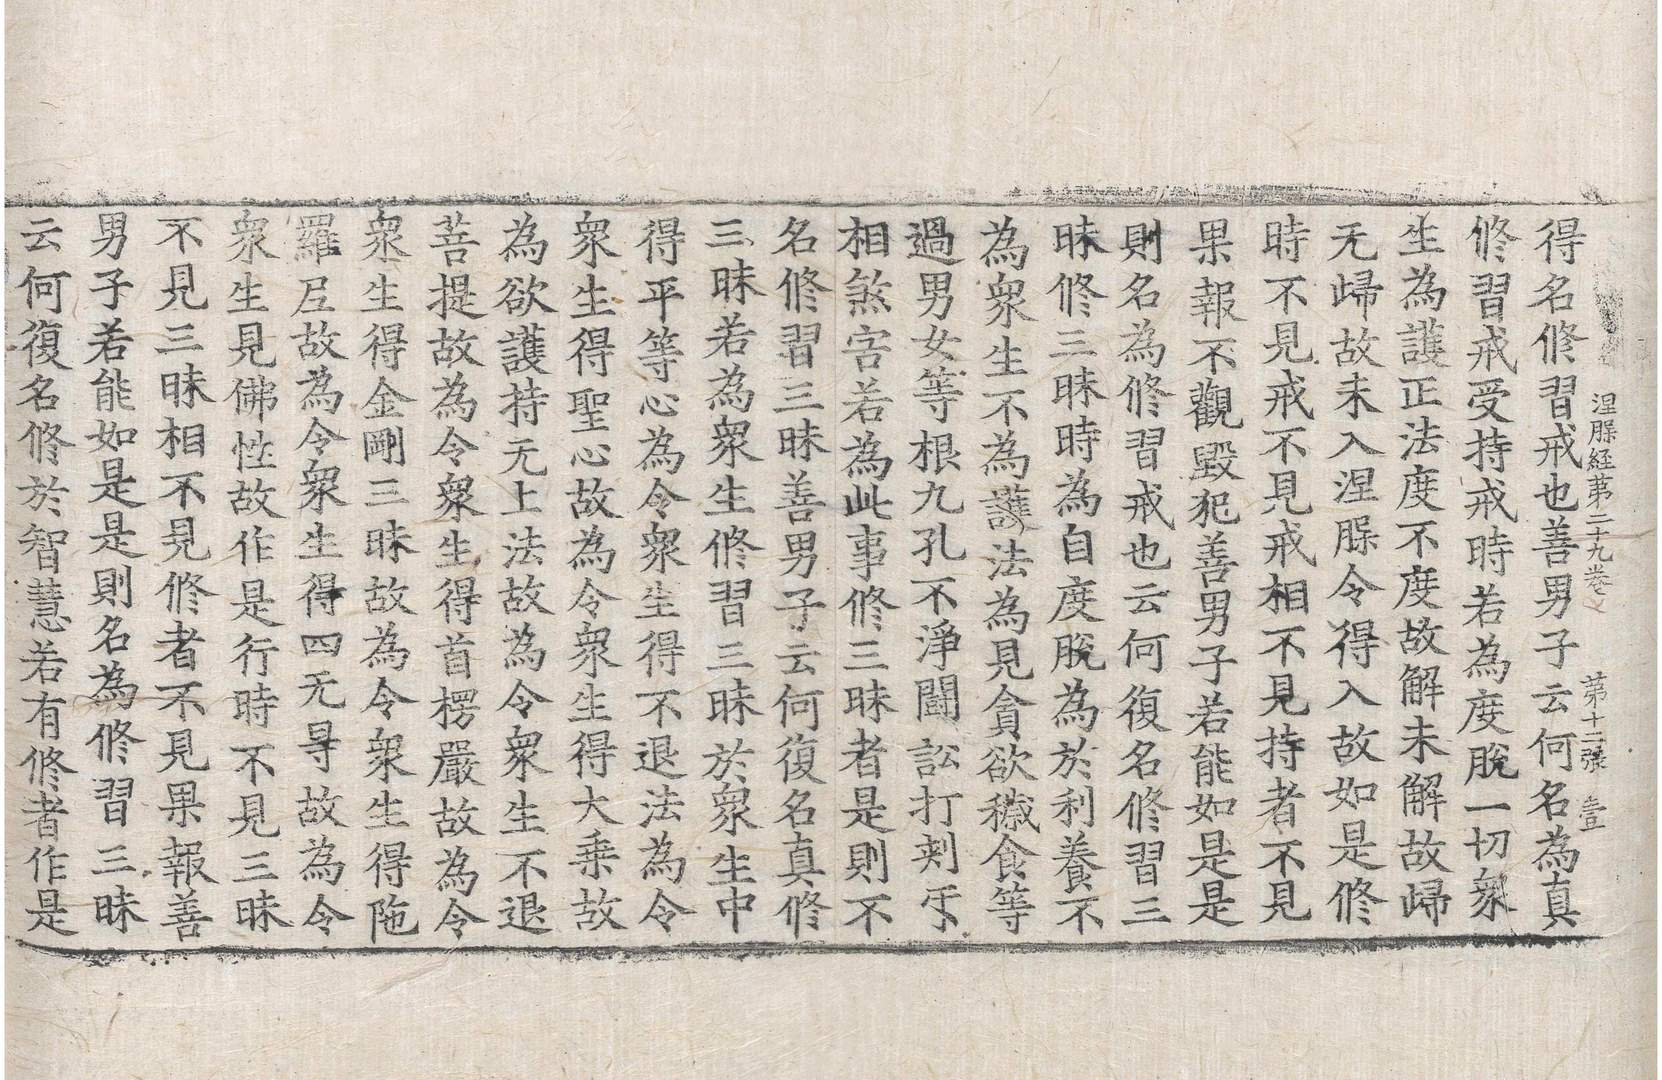 涅脲経第二十九卷 第十二張 壹
得名修習戒也善男子云何名為真
修習戒受持戒時若為度脫一切衆
生為護正法度不度故解未解故歸
无歸故未入涅脲令得入故如是修
時不見戒不見戒相不見持者不見
果報不觀毀犯善男子若能如是是
則名為修習戒也云何復名修習三
昧修三昧時為自度脫為於利養不
為衆生不為護法為見貪欲穢食等
過男女等根九孔不淨鬪訟打刺𠄔
相煞害若為此事修三昧者是則不
名修習三昧善男子云何復名真修
三昧若為衆生修習三昧於衆生中
得平等心為令衆生得不退法為令
衆生得聖心故為令衆生得大乗故
為欲護持无上法故為令衆生不退
菩提故為令衆生得首楞嚴故為令
衆生得金剛三昧故為令衆生得陁
羅𡰱故為令衆生得四无㝵故為令
衆生見佛性故作是行時不見三昧
不見三昧相不見修者不見果報善
男子若能如是是則名為修習三昧
云何復名修於智慧若有修者作是